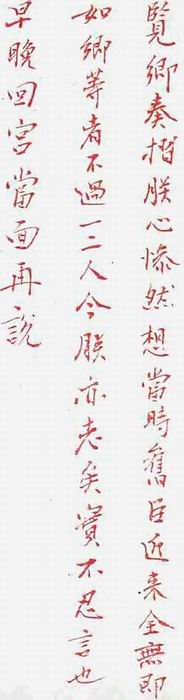 覽卿奏摺朕心惨然想當時舊臣近来全無即
如卿等者不過一二人今朕亦老矣實不忍言也
早晚回宮當面再說